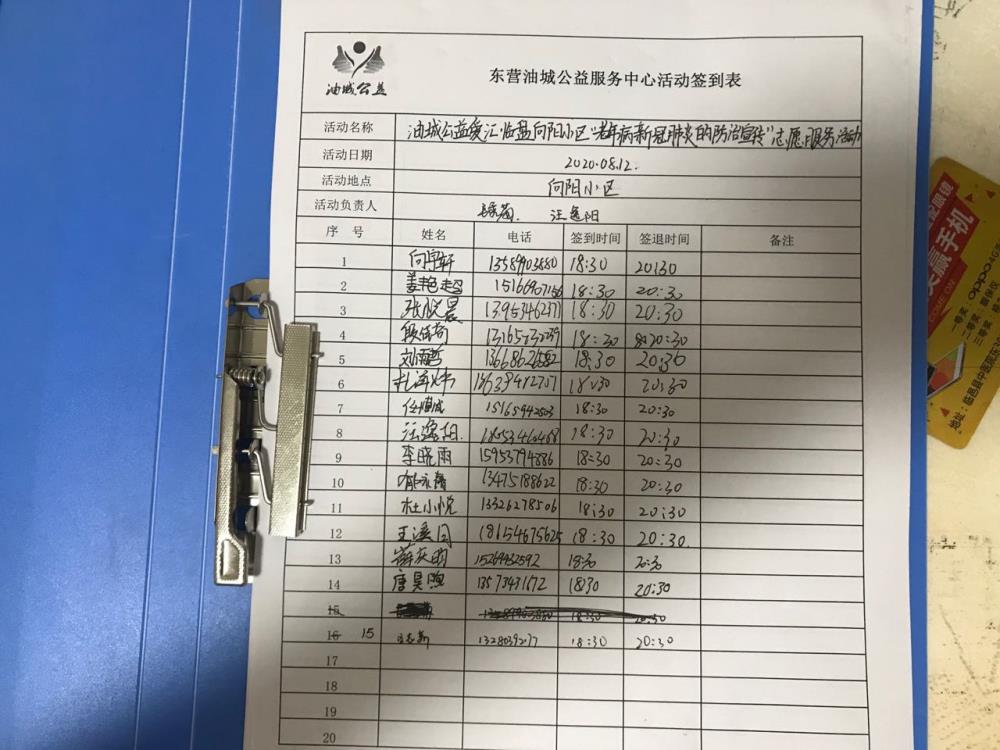 油城公益
东营油城公益服务中心活动签到表
活动名称 油城公益爱汇临盘向阳小区"老年病新冠肺炎的防治宣传"志愿服务活动
活动日期 2020.08.12.
活动地点 向阳小区
活动负责人 汪逸阳
序号 姓名 电话 签到时间 签退时间 备注
1 13589903880 18:30 20:30
2 18:30 20:30
3 张悦晨 13953462371 18:30 20:30
4 18:30 20:30
5 刘雨哲 18:30 20:30
6 18:30 20:30
7 15165942503 18:30 20:30
8 汪逸阳 18:30 20:30
9 李晓雨 15953794886 18:30 20:30
10 13475188622 18:30 20:30
11 杜小悦 13326278506 18:30 20:30
12 王溪月 18154675625 18:30 20:30
13 15269432592 18:30 20:30
14 唐昊煦 13573431672 18:30 20:30
15 18:30 20:30
16 15 18:30 20:30
17
18
19
20
赢手机
一等奖:
二等奖:
三等奖:
地址:临邑县中医院